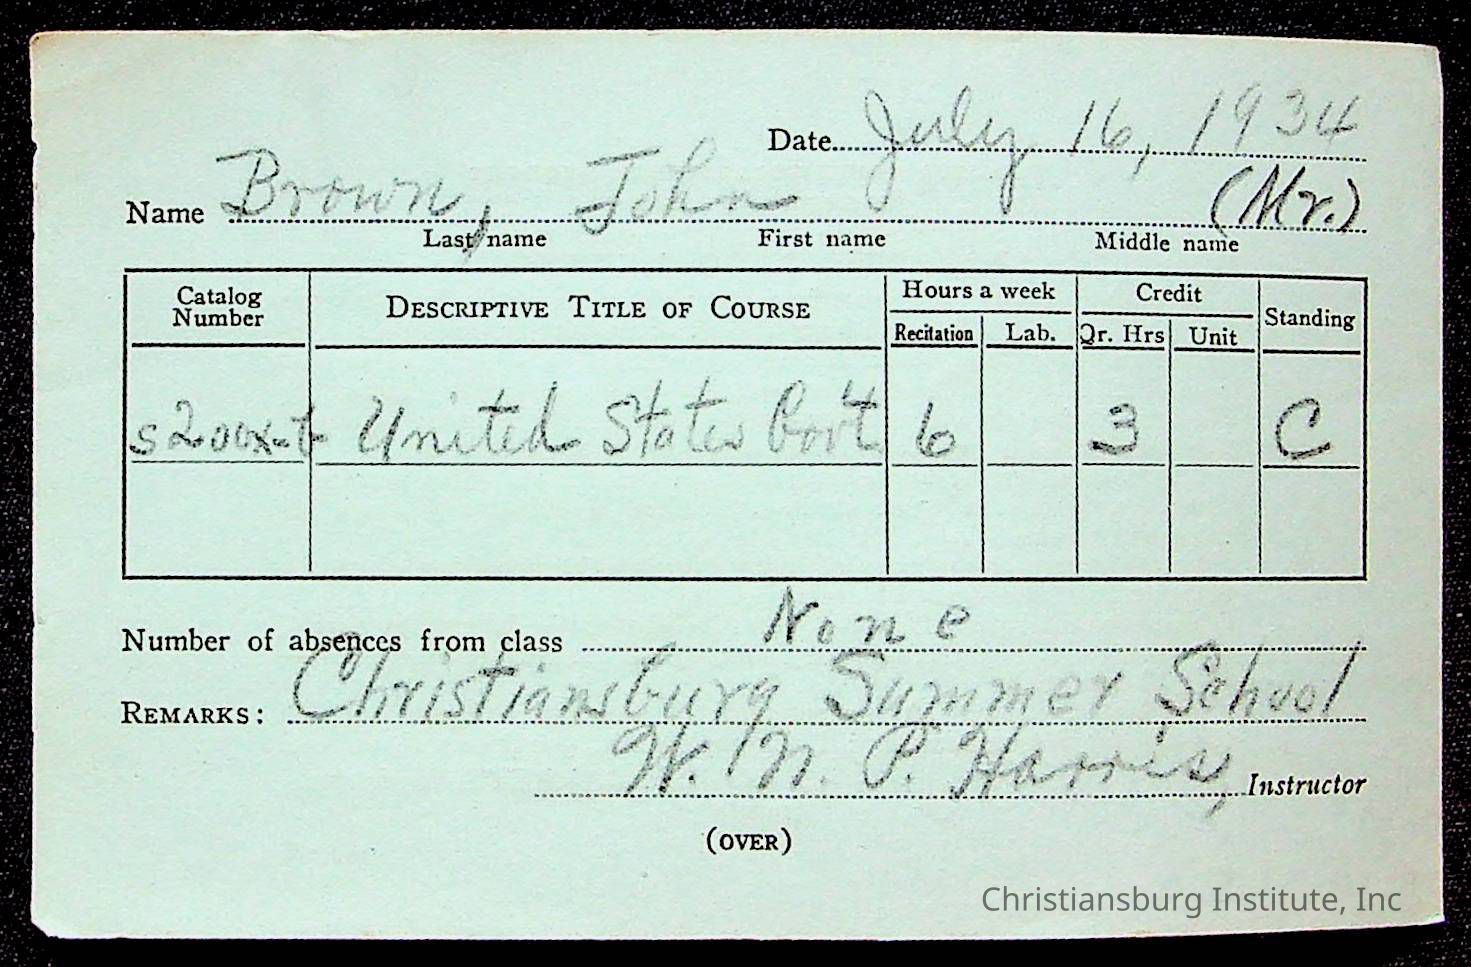 Date July 16, 1934
Name Brown, John (Mr.)
Last name First name Middle name
Catalog Number DESCRIPTIVE TITLE OF COURSE Hours a week Credit Standing
Recitation Lab. Qr. Hrs Unit
s200x-t United States Gov't 6 3 C
Number of absences from class None
REMARKS: Christiansburg Summer School
W. N. P. Harris, Instructor
(OVER)
Christiansburg Institute, Inc